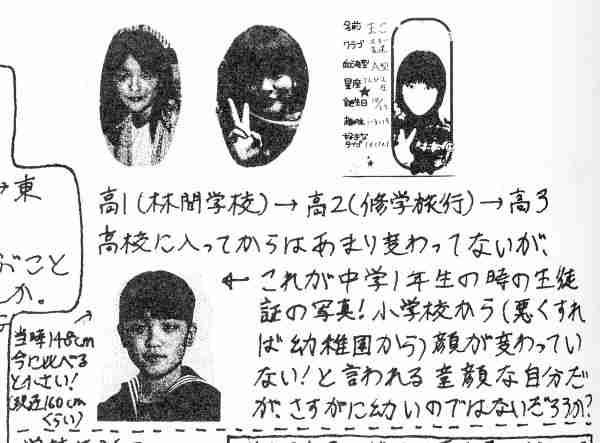 名前 まこ
クラブ
血液型 A型
星座
誕生日 10/17
趣味
好きな
タイプ
→東
高1(林間学校)→高2(修学旅行)→高3
高校に入ってからはあまり変わってないが、
ぶこと
か。
← これが中学1年生の時の生徒
証の写真!小学校から(悪くすれ
ば幼稚園から)顔が変わってい
ない!と言われる童顔な自分だ
が、さすがに幼いのではないだろうか?
当時148cm
今に比べる
と小さい!
(現在160cm
くらい)